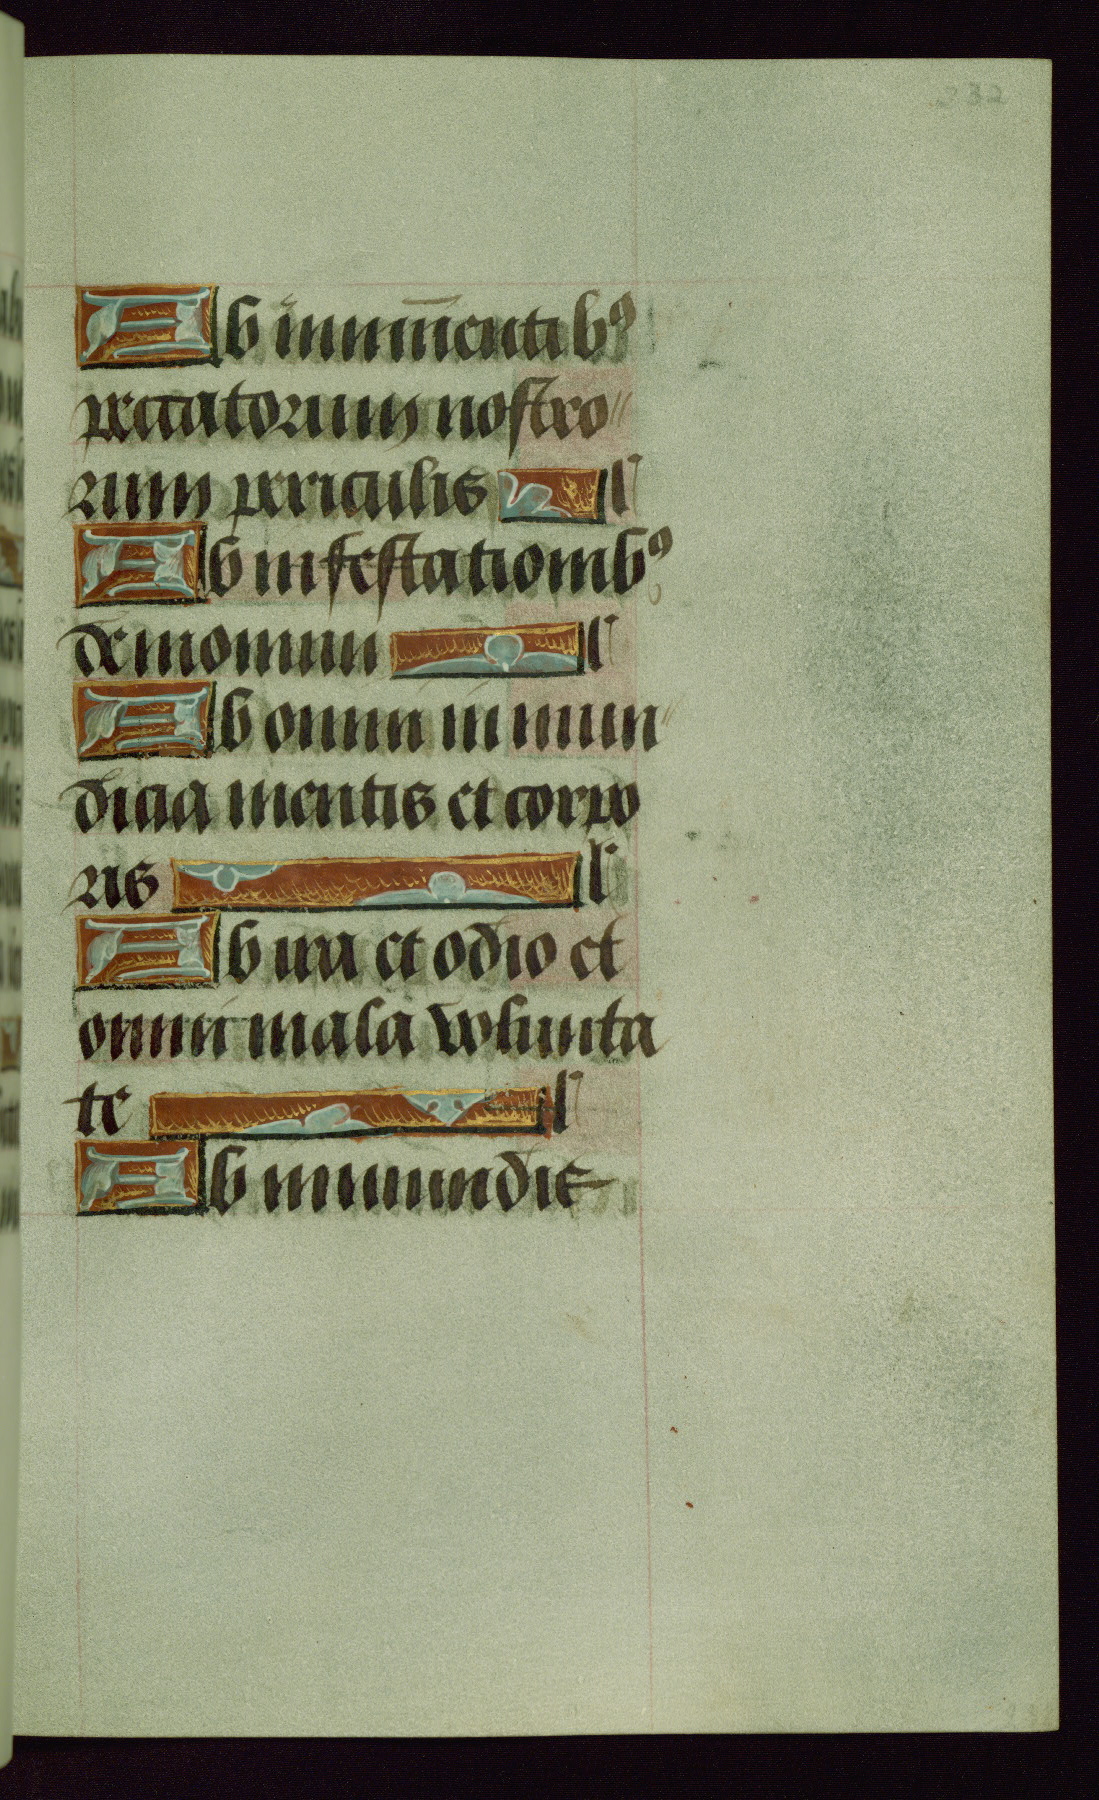 232
Ab inminentibꝰ
peccatorum nostro//
rum periculis l
Ab infestationibꝰ
demonum l
Ab omni inmun//
dicia mentis et corpo
ris l
Ab ira et odio et
omni mala volunta
te l
Ab inmundis